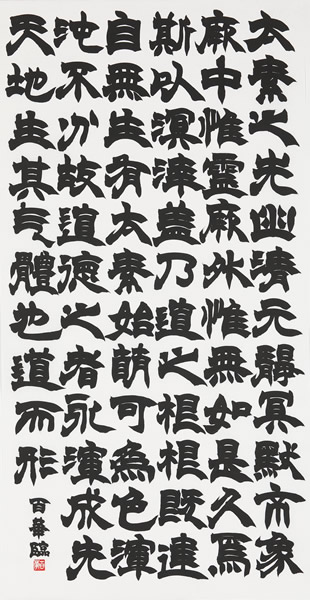 太素之先幽清元靜冥默象
厥中惟靈厥外惟無如是久焉
斯以溟涬蓋乃道之根根既建
自無生有太素始萌可為色渾
沌不分故道德之者永渾成先
天地生其气體也道而形
百華臨